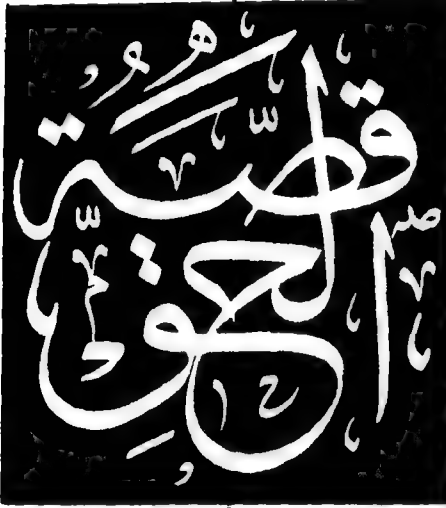 قصة
الحق